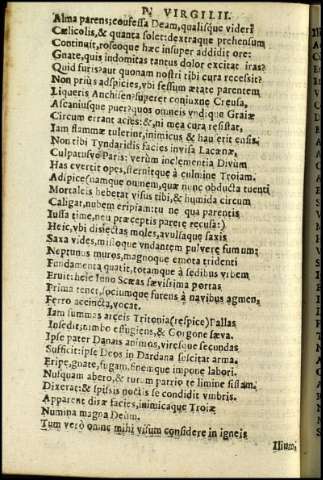 P. VIRGILII.
Alma parens; confessa Deam, qualisque videri
Cælicolis, & quanta solet: dextraque prehensum
Continuit, roseoque hæc insuper addidit ore:
Gnate, quis indomitas tantus dolor excitat iras?
Quid furis? aut quonam nostri tibi cura recessit?
Non priùs adspicies, vbi fessum ætate parentem
Liqueris Anchisen? superet coniuxne Creusa,
Ascaniusque puer? quos omneis vndique Graiæ
Circum errant acies: &, ni mea cura resistat,
Iam flammæ tulerint, inimicus & hauserit ensis.
Non tibi Tyndaridis facies invisa Lacænæ,
Culpatusve Paris: verùm inclementia Divûm
Has evertit opes, sternitque à culmine Troiam.
Adspice (namque omnem, quæ nunc obducta tuenti
Mortaleis hebetat visus tibi, & humida circum
Caligat, nubem eripiam: tu ne qua parentis
Iussa time, neu præceptis parere recusa:)
Heic, vbi disiectas moles, avulsaque saxis
Saxa vides, mistoque vndantem pulvere fumum:
Neptunus muros, magnoque emota tridenti
Fundamenta quatit, totamque à sedibus vrbem
Eruit: heic Iuno Scæas sævissima portas
Prima tenet, sociumque furens à navibus agmen,
Ferro accincta, vocat.
Iam summas arceis Tritonia (respice) Pallas
Insedit, limbo effulgens, & Gorgone sæva.
Ipse pater Danais animos, viresque secundas
Sufficit: ipse Deos in Dardana suscitat arma.
Eripe, gnate, fugam, finemque impone labori.
Nusquam abero, & tutum patrio te limine sistam.
Dixerat: & spissis noctis se condidit vmbris.
Apparent diræ facies, inimicaque Troiæ
Numina magna Deûm.
Tum verò omne mihi visum considere in igneis
Ilium,